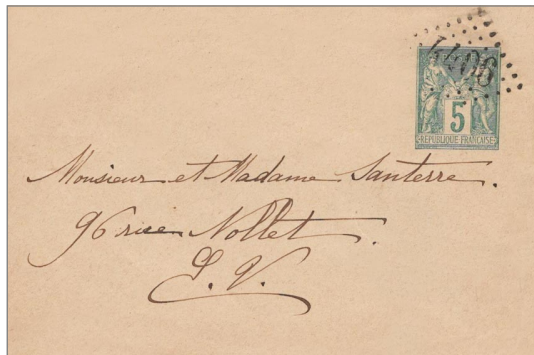 4406
5
REPUBLIQUE FRANÇAISE
Monsieur et Madame Santerre.
96 rue Nollet.
E. V.